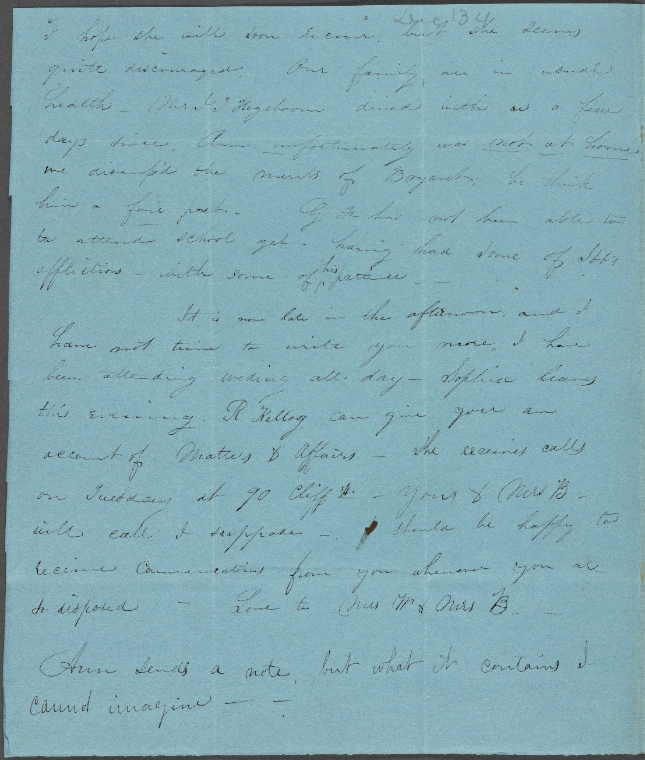 Dec '34
I hope she will soon recover, but she seems
quite discouraged. Our family are in usual
health - Mr J T Hogeboom dined with us a few
days since, Ann unfortunately was not at home.
we discussed the merits of Bryant. he think
him a fine poet - G has not been able to
to attend school yet - having had some of
afflictions - with some of his patience -
It is now late in the afternoon, and I
have not time to write you more, I have
been attending all day - Sophia leaves
this evening. R Kellog can give you an
account of Matters & Affairs - She receives calls
on Tuesday at 90 Cliff St. - Yours & Mrs B -
will call I suppose - I should be happy to
receive Communications from you whenever you are
so disposed - Love to Mrs W & Mrs B -
Ann sends a note, but what it contains I
cannot imagine - -